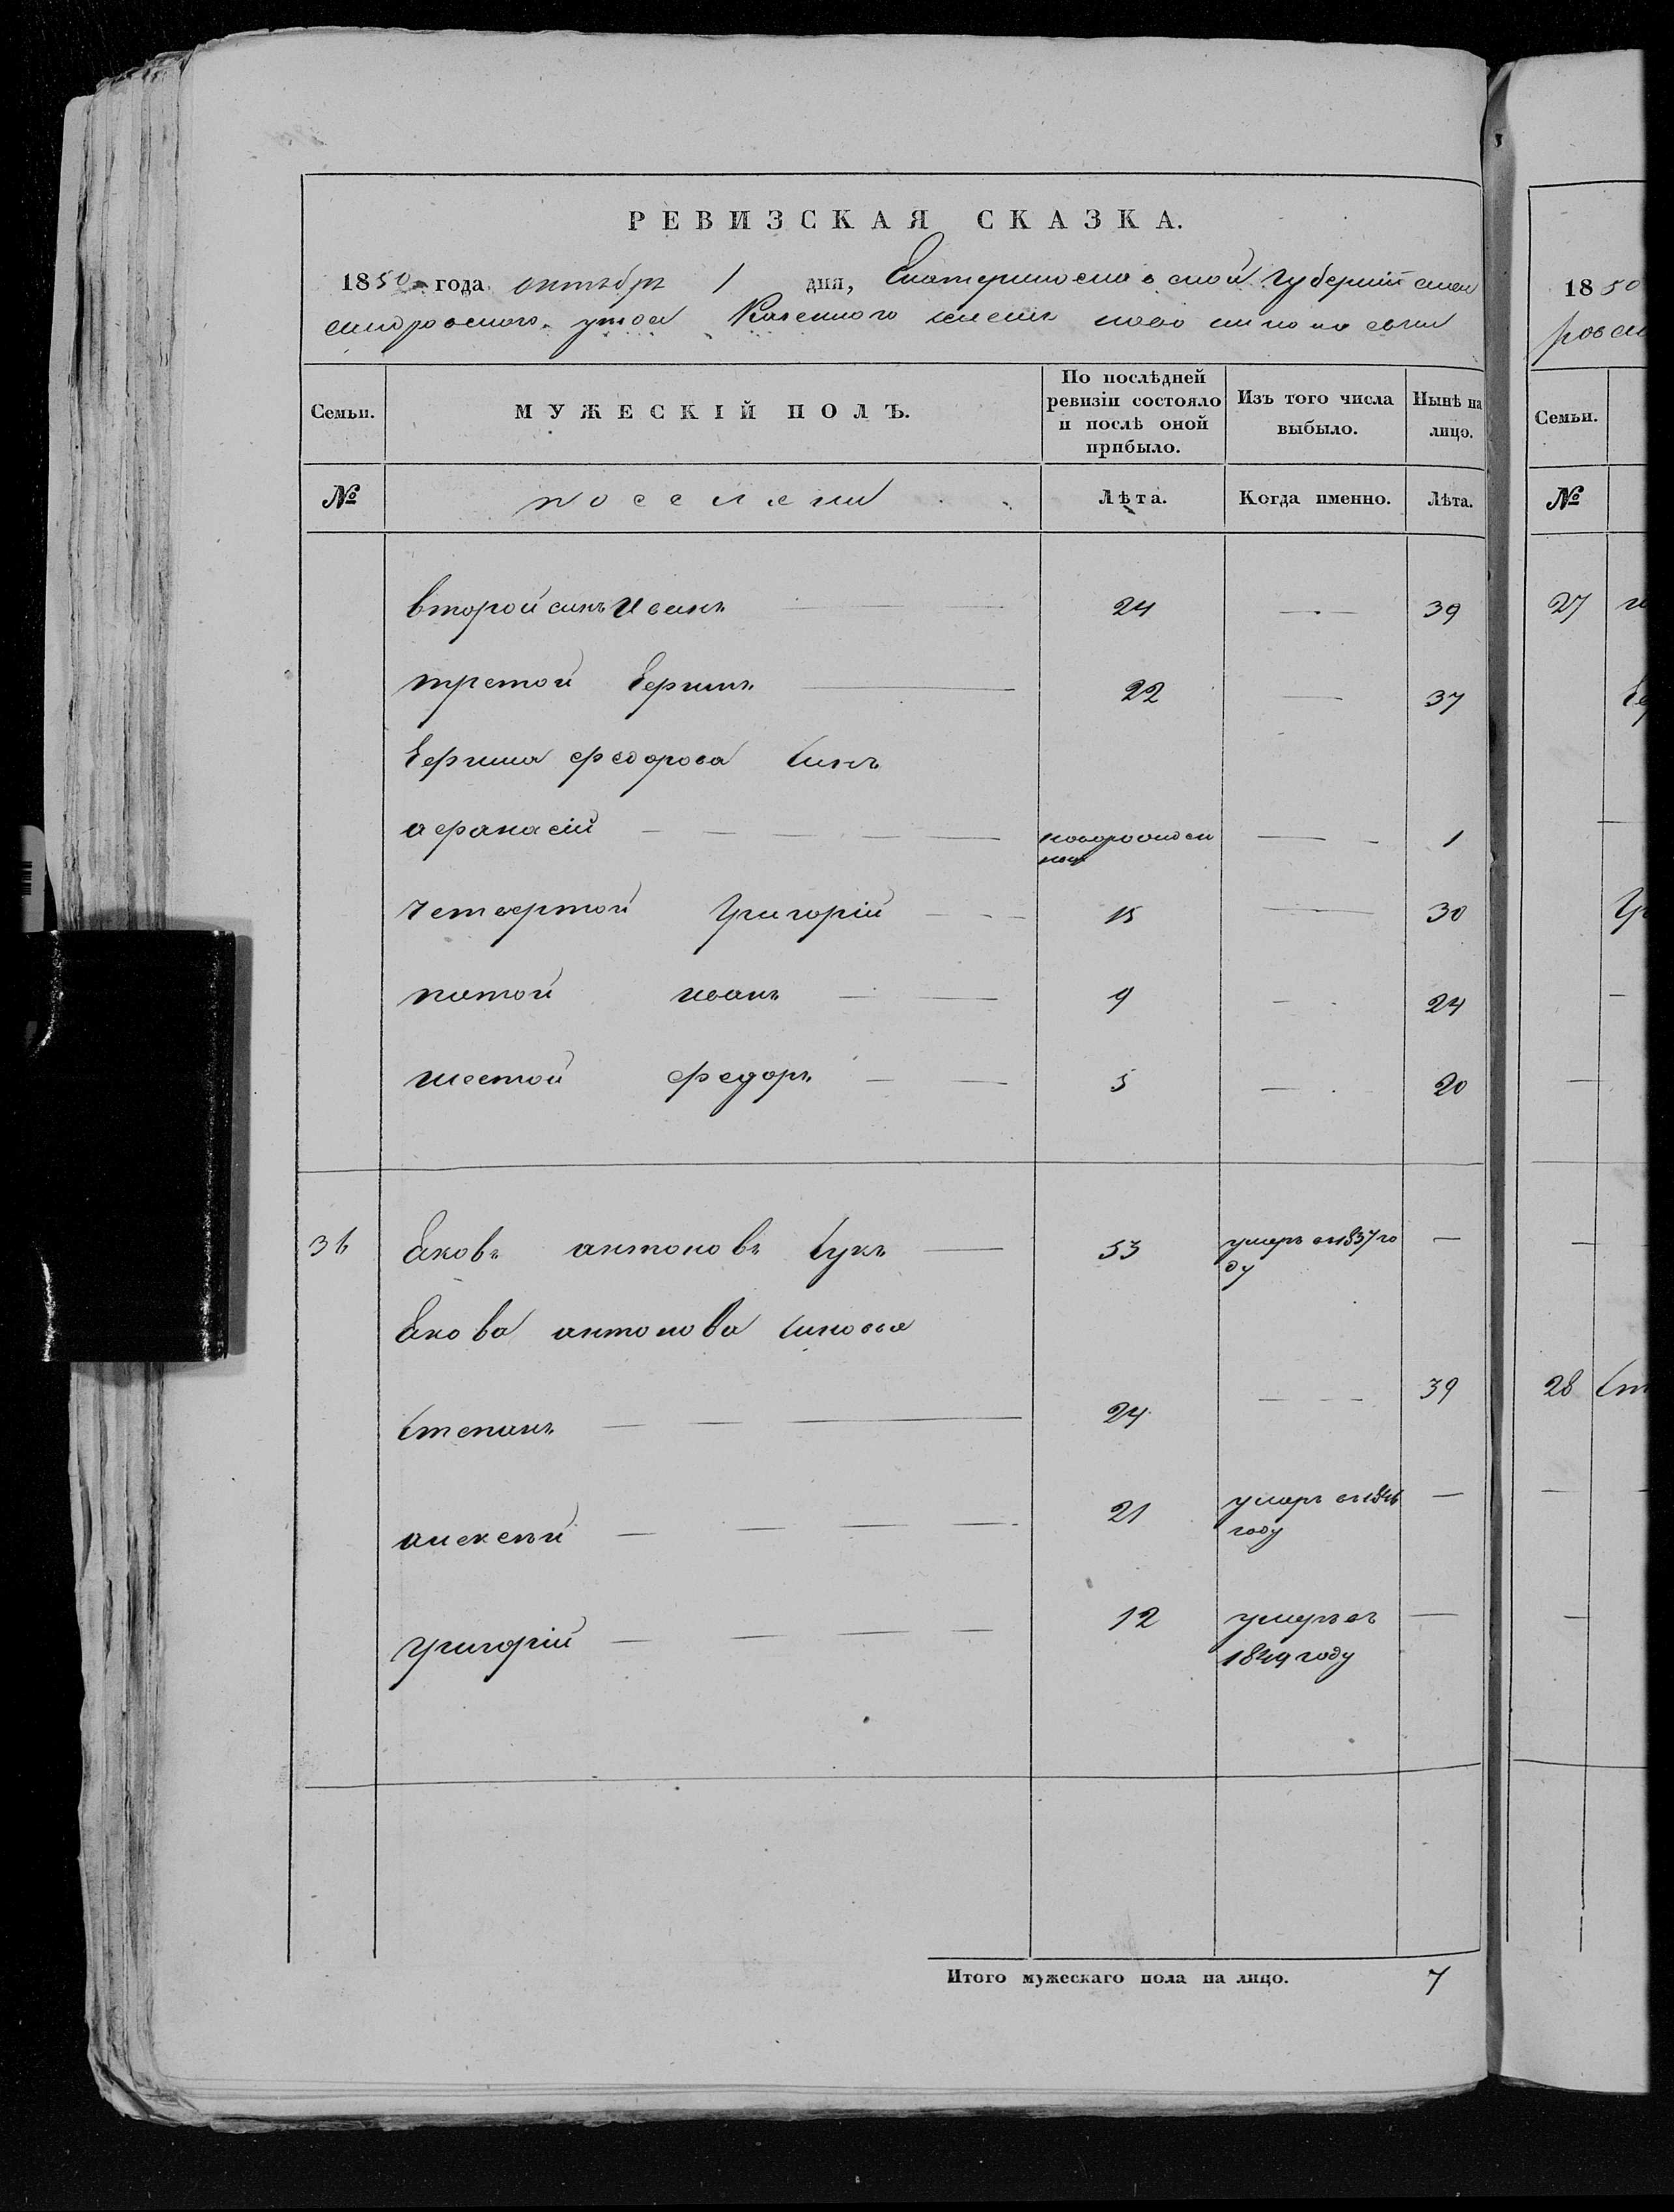 РЕВИЗСКАЯ СКАЗКА.
1850 года октября 1 дня, Екатеринославской губернии Алек
сандровского уезда Казенного имения ново николаевки
Семьи. МУЖЕСКІЙ ПОЛЪ. По послѣдней ревизіи состояло и послѣ оной прибыло. Изъ того числа выбыло. Нынѣ на лицо.
№ поселяни Лѣта. Когда именно. Лѣта.
второй синъ Иванъ 24 — 39
третой Ефимъ 22 — 37
Ефима федорова Синъ
афанасій новорожден — 1
ный
четвертой Григорій 15 — 30
пятой иванъ 9 — 24
шестой федоръ 5 — 20
36 Яковъ антоновъ 53 умеръ въ 1837 го —
ду
Якова антонова Синовя
Степанъ 24 — 39
алексей 21 умеръ въ 1846 —
году
Григорій 12 умеръ въ —
1849 году
Итого мужескаго пола на лицо. 7
1850
ровск
Семьи.
№
27
28 Ст